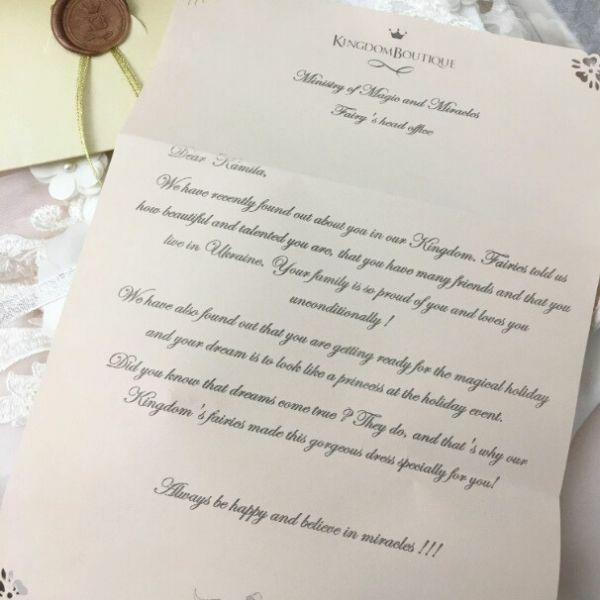 KINGDOMBOUTIQUE
Ministry of Magic and Miracles
Fairy's head office
Dear Kamila,
We have recently found out about you in our Kingdom. Fairies told us
how beautiful and talented you are, that you have many friends and that you
live in Ukraine. Your family is so proud of you and loves you
unconditionally !
We have also found out that you are getting ready for the magical holiday
and your dream is to look like a princess at the holiday event.
Did you know that dreams come true ? They do, and that's why our
Kingdom's fairies made this gorgeous dress specially for you!
Always be happy and believe in miracles !!!